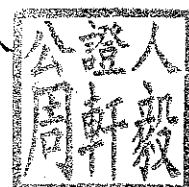 公證人
周軒毅